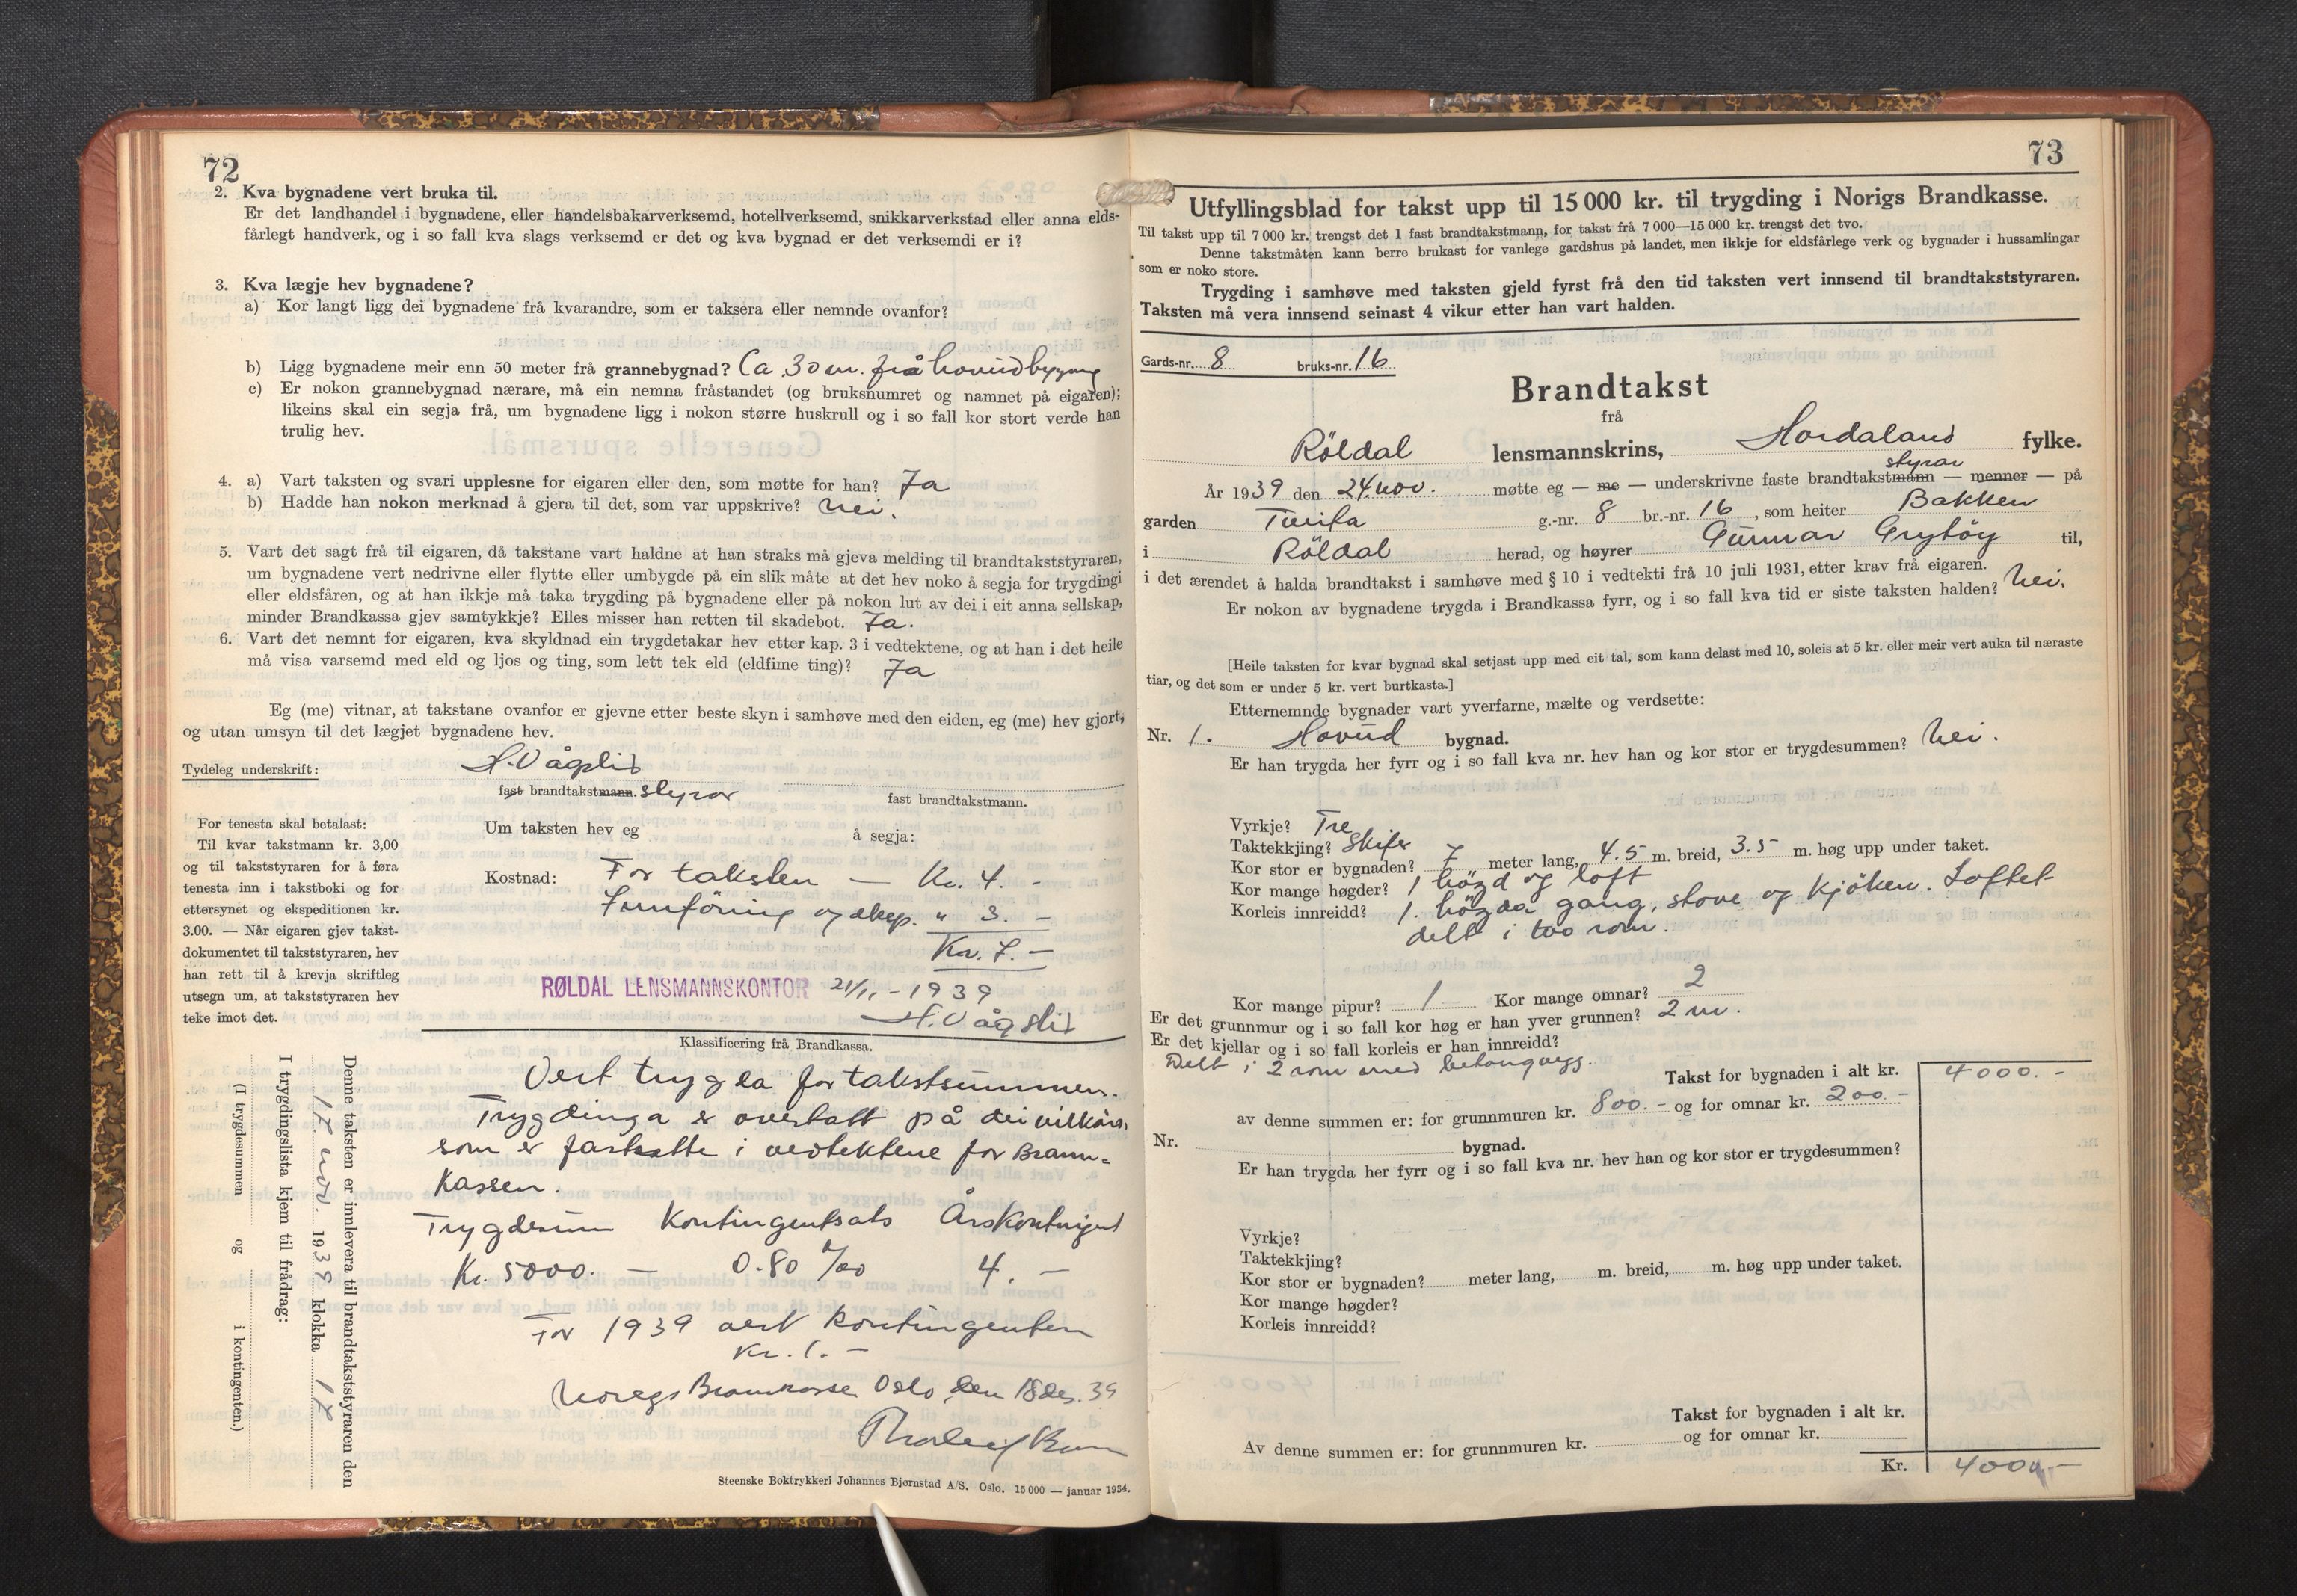 72
2. Kva bygnadene vert bruka til.
Er det landhandel i bygnadene, eller handelsbakarverksemd, hotellverksemd, snikkarverkstad eller anna elds-
fårlegt handverk, og i so fall kva slags verksemd er det og kva bygnad er det verksemdi er i?
3. Kva lægje hev bygnadene?
a) Kor langt ligg dei bygnadene frå kvarandre, som er taksera eller nemnde ovanfor?
b) Ligg bygnadene meir enn 50 meter frå grannebygnad? Ca 30 m. frå hovudbygning
c) Er nokon grannebygnad nærare, må ein nemna fråstandet (og bruksnumret og namnet på eigaren);
likeins skal ein segja frå, um bygnadene ligg i nokon større huskrull og i so fall kor stort verde han
trulig hev.
4. a) Vart taksten og svari upplesne for eigaren eller den, som møtte for han? Ja
b) Hadde han nokon merknad å gjera til det, som var uppskrive? Nei.
5. Vart det sagt frå til eigaren, då takstane vart haldne at han straks må gjeva melding til brandtakststyraren,
um bygnadene vert nedrivne eller flytte eller umbygde på ein slik måte at det hev noko å segja for trygdingi
eller eldsfåren, og at han ikkje må taka trygding på bygnadene eller på nokon lut av dei i eit anna sellskap,
minder Brandkassa gjev samtykkje? Elles misser han retten til skadebot. Ja.
6. Vart det nemnt for eigaren, kva skyldnad ein trygdetakar hev etter kap. 3 i vedtektene, og at han i det heile
må visa varsemd med eld og ljos og ting, som lett tek eld (eldfime ting)? Ja
Eg (me) vitnar, at takstane ovanfor er gjevne etter beste skyn i samhøve med den eiden, eg (me) hev gjort,
og utan umsyn til det lægjet bygnadene hev.
Tydeleg underskrift: H. Vågslid
fast brandtakstmann. styrar fast brandtakstmann.
For tenesta skal betalast:
Til kvar takstmann kr. 3,00
og til takststyraren for å føra
tenesta inn i takstboki og for
ettersynet og ekspeditionen kr.
3.00. — Når eigaren gjev takst-
dokumentet til takststyraren, hev
han rett til å krevja skriftleg
utsegn um, at takststyraren hev
teke imot det.
Um taksten hev eg å segja:
Kostnad: For taksten — Kr. 4. -
Innföring og eksp. " 3. -
Kr. 7. -
RØLDAL LENSMANNSKONTOR 21/11 - 1939
H. Vågslid
Klassificering frå Brandkassa.
Vert trygda for takstsummen.
Trygdinga er overtatt på dei vilkår,
som er fastsette i vedtektene for Brann-
kassen.
Trygdesum Kontingentsats Årskontingent
Kr. 5000. — 0.80 ‰ 4. —
For 1939 vert kontingenten
Kr. 1. —
Noregs Brannkasse Oslo, den 18 des. 39
Steenske Boktrykkeri Johannes Bjørnstad A/S. Oslo. 15 000 — januar 1934.
Denne taksten er innlevera til brandtakststyraren den
17 nov. 1939 klokka 17
I trygdingslista kjem til frådrag:
(I trygdesummen og i kontingenten.)
73
Utfyllingsblad for takst upp til 15 000 kr. til trygding i Norigs Brandkasse.
Til takst upp til 7 000 kr. trengst det 1 fast brandtakstmann, for takst frå 7 000—15 000 kr. trengst det tvo.
Denne takstmåten kann berre brukast for vanlege gardshus på landet, men ikkje for eldsfårlege verk og bygnader i hussamlingar
som er noko store.
Trygding i samhøve med taksten gjeld fyrst frå den tid taksten vert innsend til brandtakststyraren.
Taksten må vera innsend seinast 4 vikur etter han vart halden.
Gards-nr. 8 bruks-nr. 16
Brandtakst
frå
Röldal lensmannskrins, Hordaland fylke.
styrar
År 1939 den 24. nov. møtte eg — me — underskrivne faste brandtakstmann — menner — på
garden g.-nr. 8 br.-nr. 16, som heiter Bakken
i Röldal herad, og høyrer Gunnar Grytöy til,
i det ærendet å halda brandtakst i samhøve med § 10 i vedtekti frå 10 juli 1931, etter krav frå eigaren.
Er nokon av bygnadene trygda i Brandkassa fyrr, og i so fall kva tid er siste taksten halden? Nei.
[Heile taksten for kvar bygnad skal setjast upp med eit tal, som kann delast med 10, soleis at 5 kr. eller meir vert auka til næraste
tiar, og det som er under 5 kr. vert burtkasta.]
Etternemnde bygnader vart yverfarne, mælte og verdsette:
Nr. 1. Hovud bygnad.
Er han trygda her fyrr og i so fall kva nr. hev han og kor stor er trygdesummen? Nei.
Vyrkje? Tre
Taktekkjing? Skifer
Kor stor er bygnaden? 7 meter lang, 4.5 m. breid, 3.5 m. høg upp under taket.
Kor mange høgder? 1 högd og loft
Korleis innreidd? 1. högda gang, stove og kjöken. Loftet
delt i two rom.
Kor mange pipur? 1 Kor mange omnar? 2
Er det grunnmur og i so fall kor høg er han yver grunnen? 2 m.
Er det kjellar og i so fall korleis er han innreidd?
Delt i 2 rom med betongvegg.
Takst for bygnaden i alt kr. 4000. -
av denne summen er: for grunnmuren kr. 800. - og for omnar kr. 200. -
Nr. bygnad.
Er han trygda her fyrr og i so fall kva nr. hev han og kor stor er trygdesummen?
Vyrkje?
Taktekkjing?
Kor stor er bygnaden? meter lang, m. breid, m. høg upp under taket.
Kor mange høgder?
Korleis innreidd?
Takst for bygnaden i alt kr.
Av denne summen er: for grunnmuren kr. og for omnar kr.
Kr. 4000,-